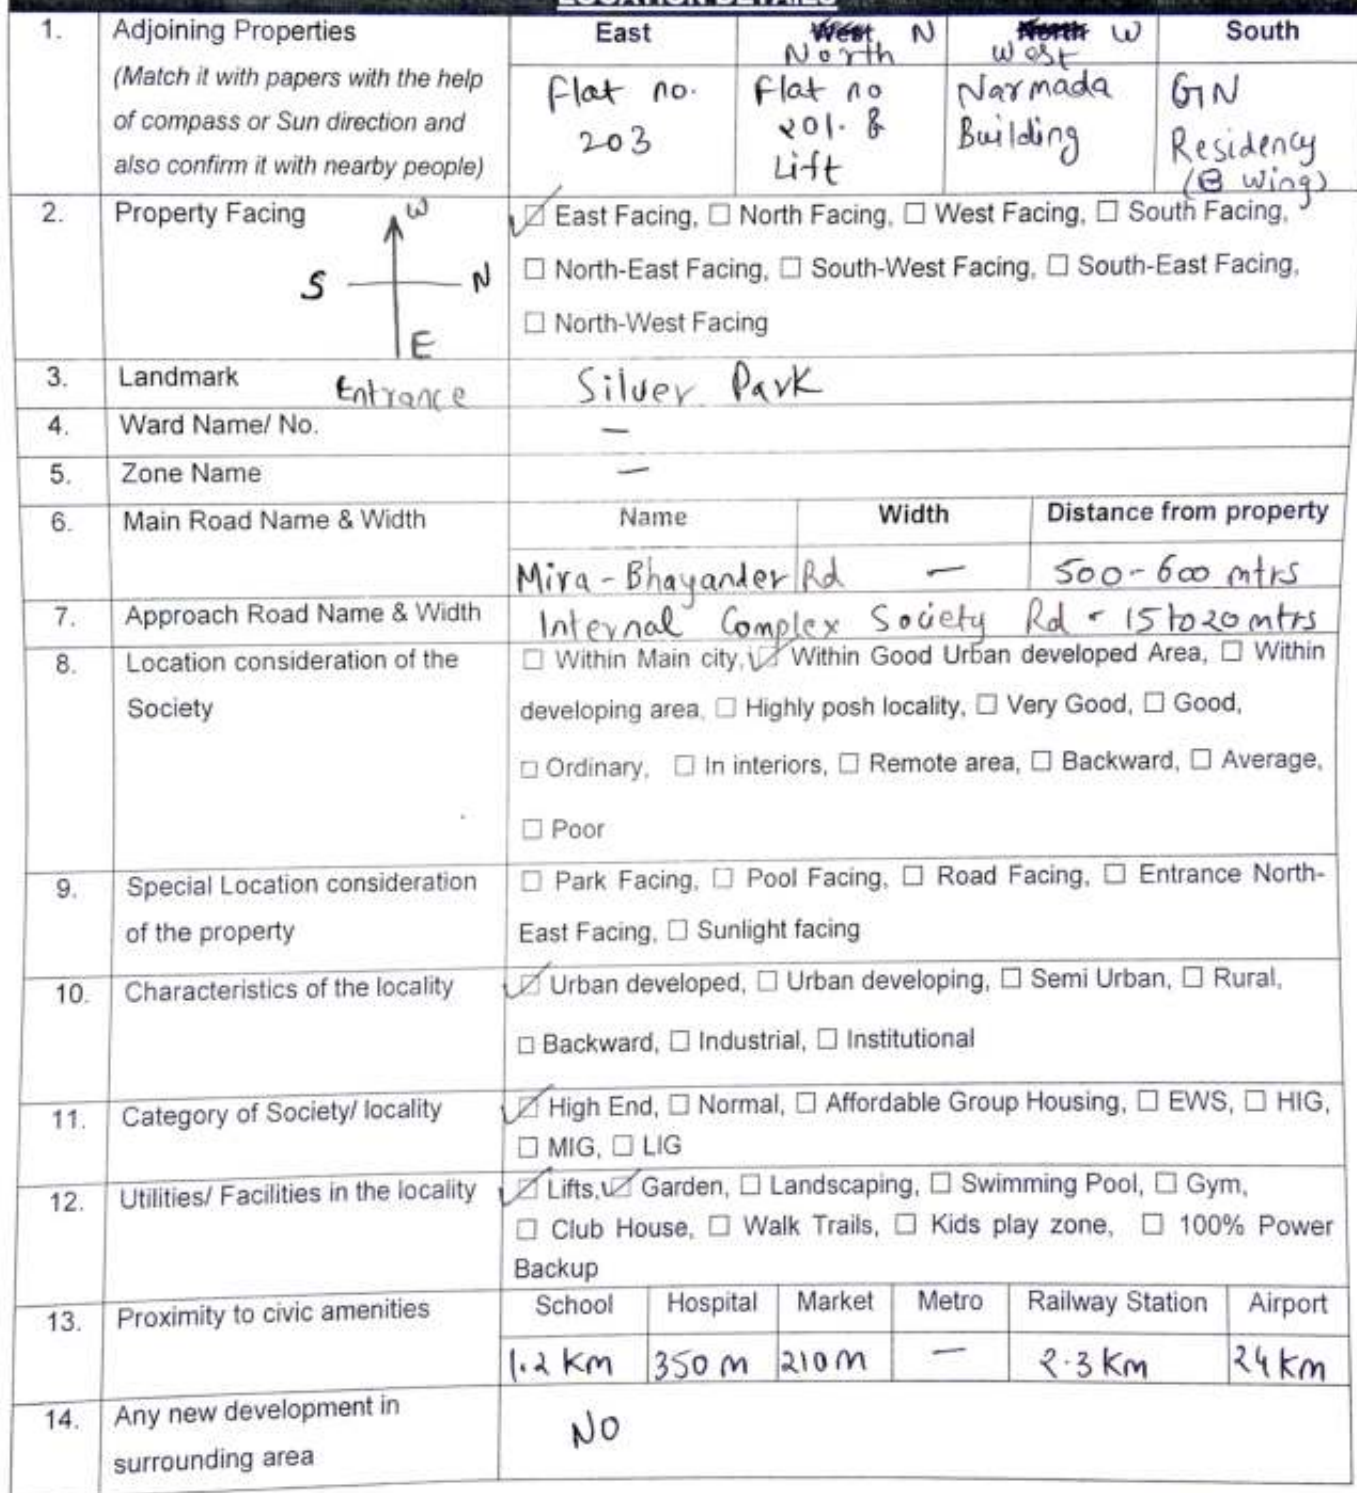 LOCATION DETAILS
1. Adjoining Properties East West N North W South
(Match it with papers with the help North West
of compass or Sun direction and Flat no. Flat no Narmada GN
also confirm it with nearby people) 203 201. & Building Residency
Lift (B wing)
2. Property Facing W ☑ East Facing, ☐ North Facing, ☐ West Facing, ☐ South Facing,
S N ☐ North-East Facing, ☐ South-West Facing, ☐ South-East Facing,
E ☐ North-West Facing
3. Landmark Entrance Silver Park
4. Ward Name/ No. –
5. Zone Name –
6. Main Road Name & Width Name Width Distance from property
Mira-Bhayander Rd – 500-600 mtrs
7. Approach Road Name & Width Internal Complex Society Rd - 15 to 20 mtrs
8. Location consideration of the ☐ Within Main city, ☑ Within Good Urban developed Area, ☐ Within
Society developing area, ☐ Highly posh locality, ☐ Very Good, ☐ Good,
☐ Ordinary, ☐ In interiors, ☐ Remote area, ☐ Backward, ☐ Average,
☐ Poor
9. Special Location consideration ☐ Park Facing, ☐ Pool Facing, ☐ Road Facing, ☐ Entrance North-
of the property East Facing, ☐ Sunlight facing
10. Characteristics of the locality ☑ Urban developed, ☐ Urban developing, ☐ Semi Urban, ☐ Rural,
☐ Backward, ☐ Industrial, ☐ Institutional
11. Category of Society/ locality ☑ High End, ☐ Normal, ☐ Affordable Group Housing, ☐ EWS, ☐ HIG,
☐ MIG, ☐ LIG
12. Utilities/ Facilities in the locality ☑ Lifts, ☑ Garden, ☐ Landscaping, ☐ Swimming Pool, ☐ Gym,
☐ Club House, ☐ Walk Trails, ☐ Kids play zone, ☐ 100% Power
Backup
13. Proximity to civic amenities School Hospital Market Metro Railway Station Airport
1.2 Km 350 m 210 m – 2.3 Km 24 Km
14. Any new development in NO
surrounding area